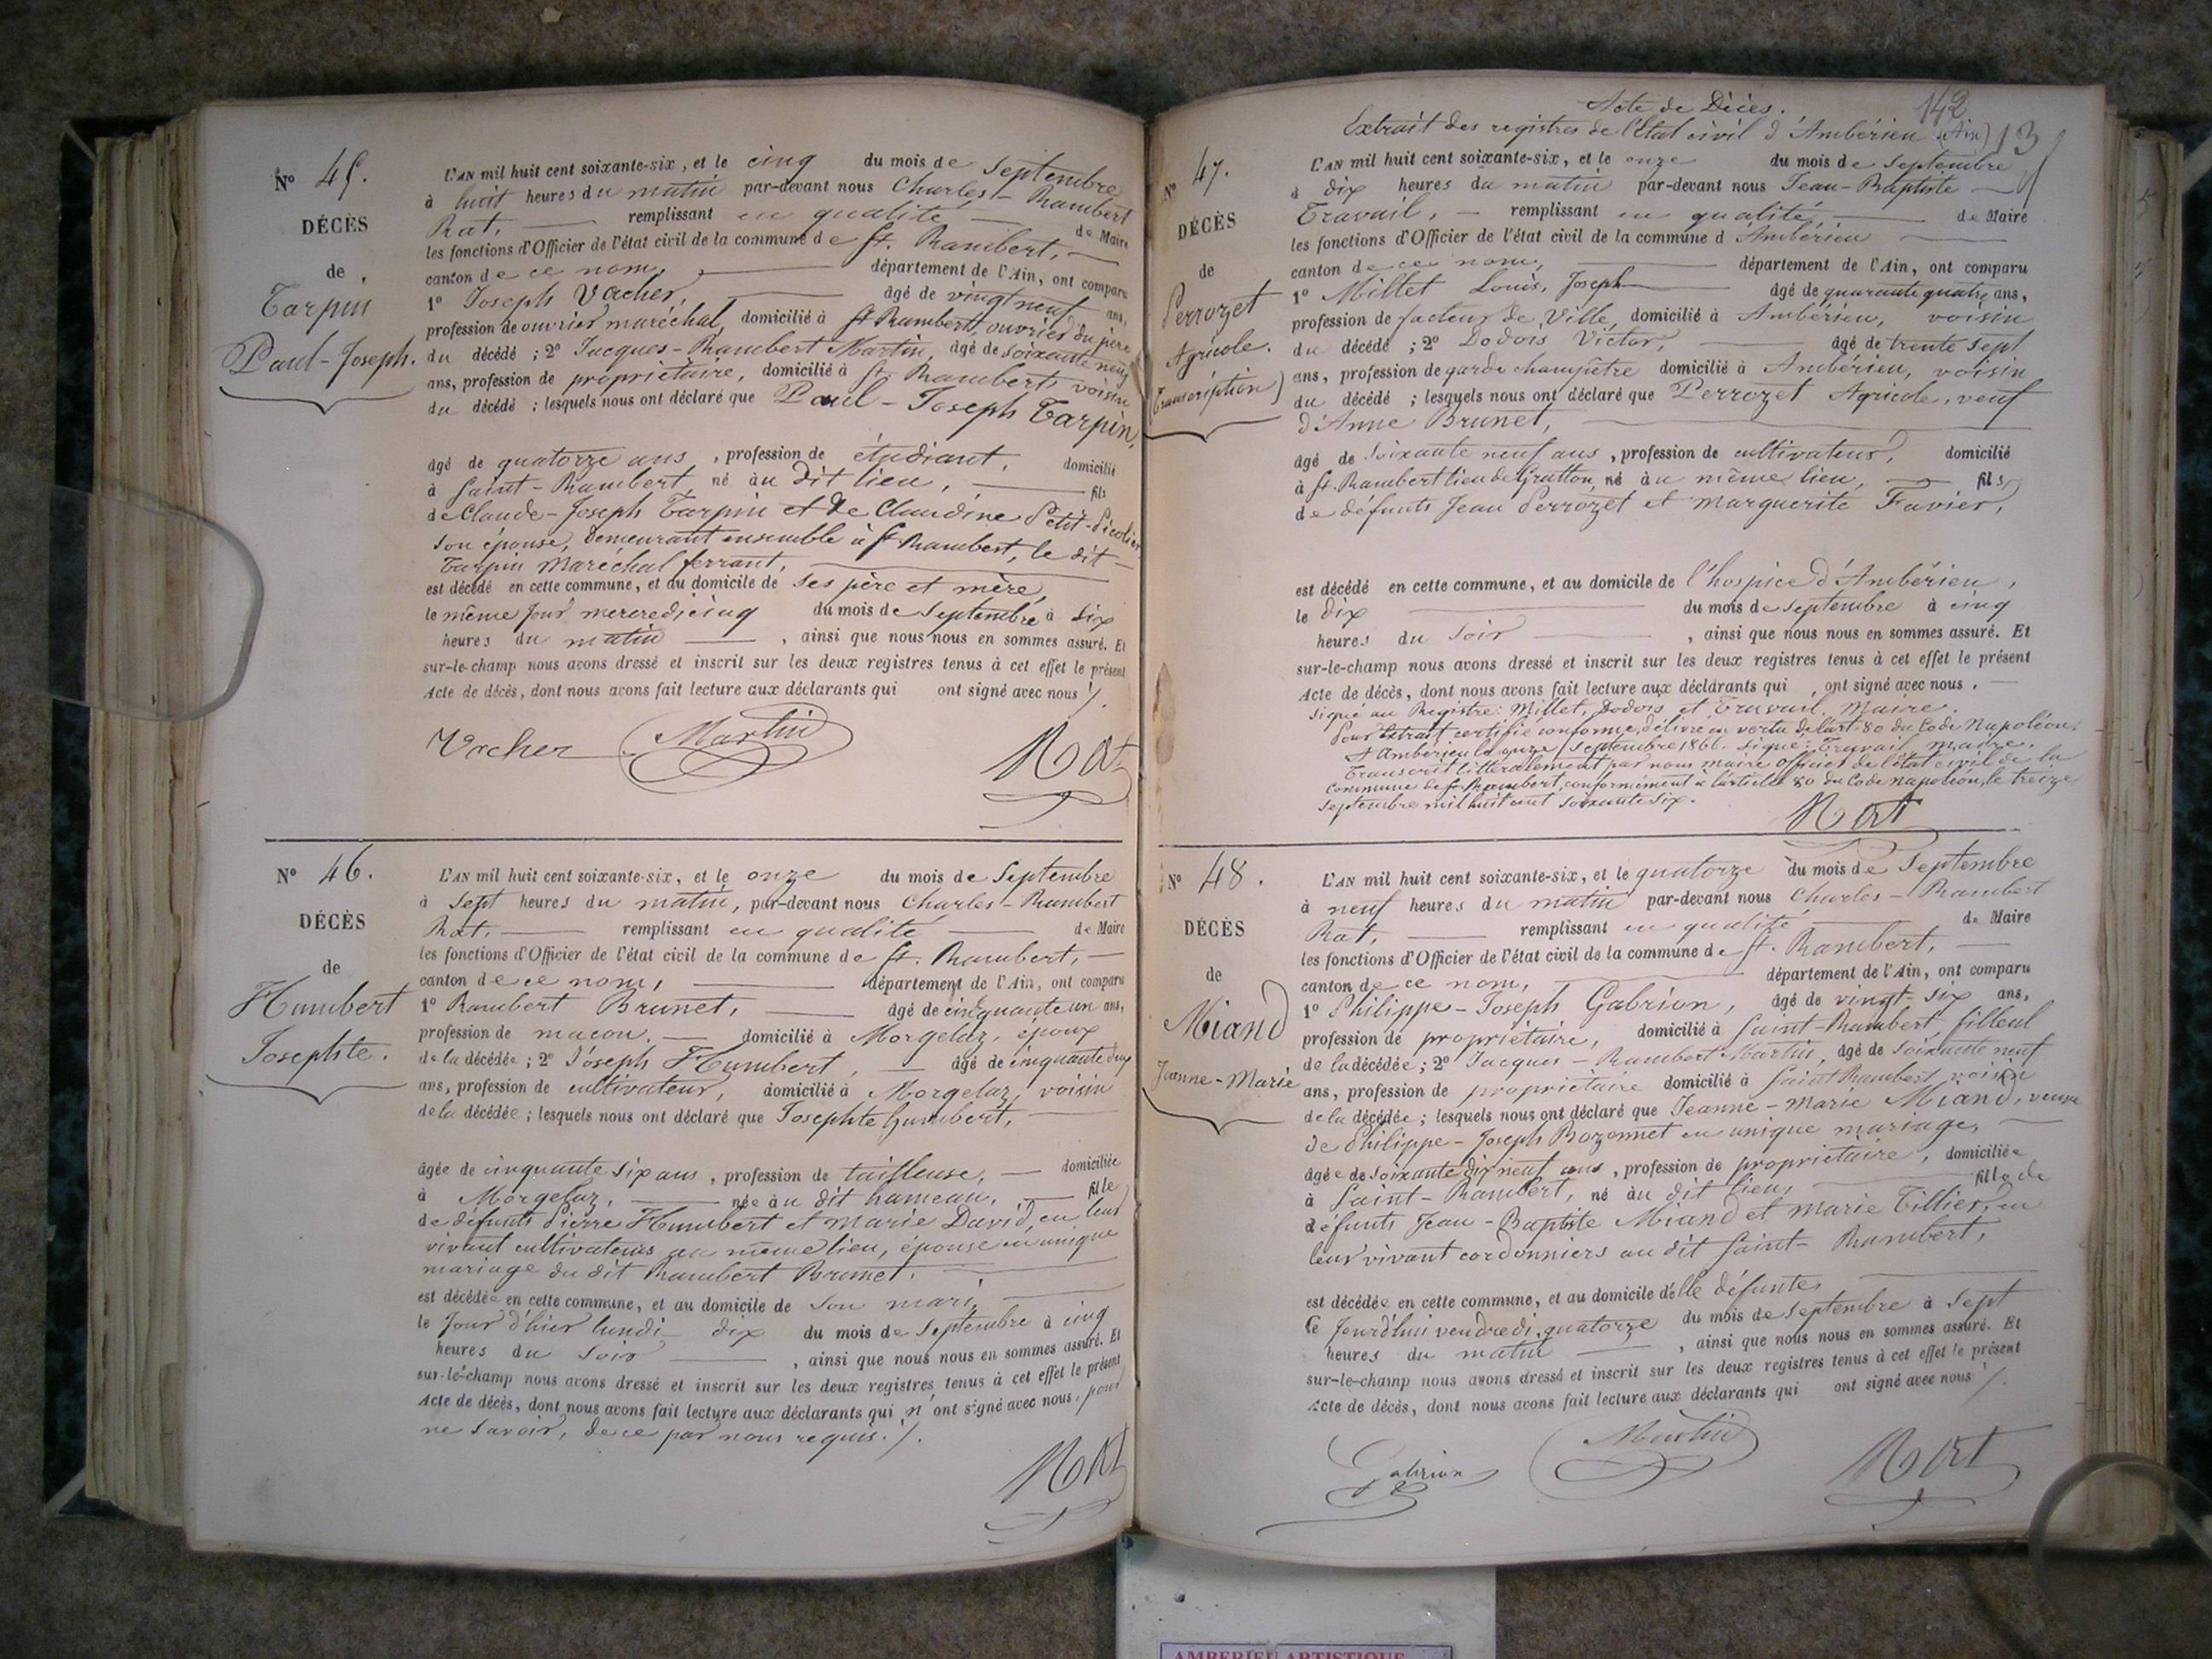 N° 45.
DÉCÈS
de
Tarpin
Paul-Joseph.
L'AN mil huit cent soixante-six, et le cinq du mois de Septembre
à huit heures du matin par-devant nous Charles-Rambert
Rat, remplissant en qualité de Maire
les fonctions d'Officier de l'état civil de la commune de St. Rambert,
canton de ce nom, département de l'Ain, ont comparu
1° Joseph Vacher, âgé de vingt neuf ans,
profession de ouvrier maréchal, domicilié à St Rambert, ouvrier du père
du décédé ; 2° Jacques-Rambert Martin, âgé de soixante neuf
ans, profession de propriétaire, domicilié à St. Rambert, voisin
du décédé ; lesquels nous ont déclaré que Paul-Joseph Tarpin,
âgé de quatorze ans, profession de étudiant, domicilié
à Saint-Rambert, né au dit lieu, fils
de Claude-Joseph Tarpin et de Claudine Petit-Picolier
son épouse, demeurant ensemble à St Rambert, le dit
Tarpin Maréchal ferrant,
est décédé en cette commune, et au domicile de ses père et mère,
le même jour mercredi cinq du mois de Septembre à six
heures du matin, ainsi que nous nous en sommes assuré. Et
sur-le-champ nous avons dressé et inscrit sur les deux registres tenus à cet effet le présent
Acte de décès, dont nous avons fait lecture aux déclarants qui ont signé avec nous ./.
Vacher Martin Rat
N° 46.
DÉCÈS
de
Humbert
Josephte.
L'AN mil huit cent soixante-six, et le onze du mois de Septembre
à sept heures du matin, par-devant nous Charles-Rambert
Rat, remplissant en qualité de Maire
les fonctions d'Officier de l'état civil de la commune de St. Rambert,
canton de ce nom, département de l'Ain, ont comparu
1° Rambert Brunet, âgé de cinquante un ans,
profession de maçon, domicilié à Morgelaz, époux
de la décédée ; 2° Joseph Humbert, âgé de cinquante deux
ans, profession de cultivateur, domicilié à Morgelaz, voisin
de la décédée ; lesquels nous ont déclaré que Josephte humbert,
âgée de cinquante six ans, profession de tailleuse, domiciliée
à Morgelaz, née au dit hameau, fille
de défunts Pierre Humbert et Marie David, en leur
vivant cultivateurs au même lieu, épouse en unique
mariage du dit Rambert Brunet.
est décédée en cette commune, et au domicile de son mari,
le jour d'hier lundi dix du mois de Septembre à cinq
heures du soir, ainsi que nous nous en sommes assuré. Et
sur-le-champ nous avons dressé et inscrit sur les deux registres tenus à cet effet le présent
Acte de décès, dont nous avons fait lecture aux déclarants qui n'ont signé avec nous, pour
ne savoir, de ce par nous requis. ./.
Rat
Acte de Décès. 142
Extrait des registres de l'Etat civil d'Ambérieu (Ain) 13
N° 47.
DÉCÈS
de
Perrozet
Agricole.
(Transcription)
L'AN mil huit cent soixante-six, et le onze du mois de Septembre
à dix heures du matin par-devant nous Jean-Baptiste
Travail, remplissant en qualité, de Maire
les fonctions d'Officier de l'état civil de la commune d'Ambérieu
canton de ce nom, département de l'Ain, ont comparu
1° Millet Louis, Joseph âgé de quarante quatre ans,
profession de facteur de Ville, domicilié à Ambérieu, voisin
du décédé ; 2° Dodois Victor, âgé de trente sept
ans, profession de garde champêtre domicilié à Ambérieu, voisin
du décédé ; lesquels nous ont déclaré que Perrozet Agricole, veuf
d'Anne Brunet,
âgé de soixante neuf ans, profession de cultivateur, domicilié
à St. Rambert lieu de Gratton, né au même lieu, fils
de défunts Jean Perrozet et Marguerite Favier,
est décédé en cette commune, et au domicile de l'hospice d'Ambérieu,
le dix du mois de septembre à cinq
heures du soir, ainsi que nous nous en sommes assuré. Et
sur-le-champ nous avons dressé et inscrit sur les deux registres tenus à cet effet le présent
Acte de décès, dont nous avons fait lecture aux déclarants qui, ont signé avec nous.
signé au Registre: Millet, Dodois et Travail, Maire.
Pour extrait certifié conforme, délivré en vertu de l'art. 80 du Code Napoléon.
A Ambérieu le onze septembre 1866. signé: Travail, maire.
Transcrit littéralement par nous maire officier de l'état civil de la
commune de St. Rambert, conformément à l'article 80 du Code napoléon, le treize
septembre mil huit cent soixante six.
Rat
N° 48.
DÉCÈS
de
Miand
Jeanne-Marie
L'AN mil huit cent soixante-six, et le quatorze du mois de Septembre
à neuf heures du matin par-devant nous Charles-Rambert
Rat, remplissant en qualité de Maire
les fonctions d'Officier de l'état civil de la commune de St. Rambert,
canton de ce nom, département de l'Ain, ont comparu
1° Philippe-Joseph Gabrion, âgé de vingt-six ans,
profession de propriétaire, domicilié à Saint-Rambert, filleul
de la décédée ; 2° Jacques-Rambert Martin, âgé de soixante neuf
ans, profession de propriétaire domicilié à Saint Rambert voisin
de la décédée ; lesquels nous ont déclaré que Jeanne-Marie Miand, veuve
de Philippe-Joseph Bozonnet en unique mariage,
âgée de soixante dix neuf ans, profession de propriétaire, domiciliée
à Saint-Rambert, né au dit lieu, fille de
défunts Jean-Baptiste Miand et Marie Tillier, en
leur vivant cordonniers au dit Saint-Rambert,
est décédée en cette commune, et au domicile d'elle défunte,
Ce jourd'hui vendredi, quatorze du mois de septembre à sept
heures du matin, ainsi que nous nous en sommes assuré. Et
sur-le-champ nous avons dressé et inscrit sur les deux registres tenus à cet effet le présent
Acte de décès, dont nous avons fait lecture aux déclarants qui ont signé avec nous ./.
Gabrion Martin Rat
AMBERIEU ARTISTIQUE